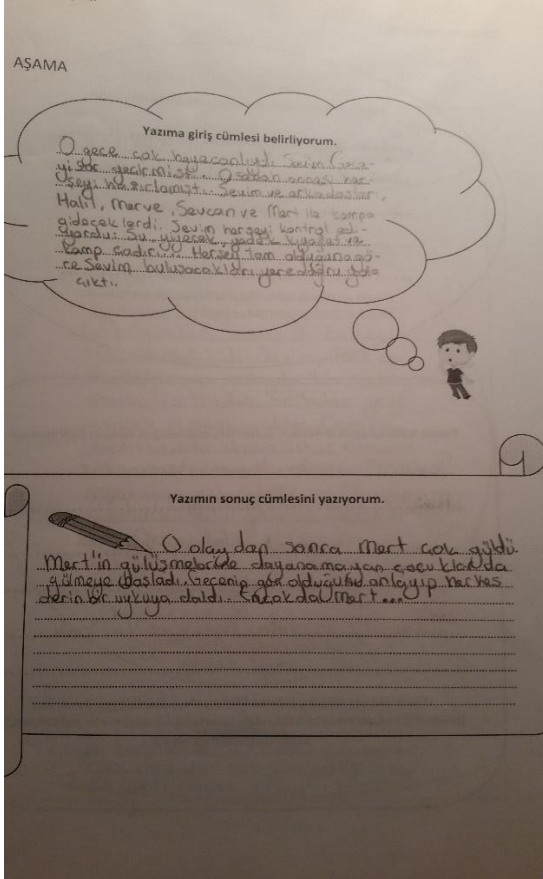 AŞAMA
Yazıma giriş cümlesi belirliyorum.
O gece çok heyecanlıydı. Sevim
geçirmişti. O sabah annesi her
şeyi hazırlamıştı. Sevim ve arkadaşları,
Halil, Merve, Sevcan ve Mert ile kampa
gideceklerdi. Sevim herşeyi kontrol edi-
yordu. Su, yiyecek, yedek kıyafet ve
kamp çadırı.... Herşey tam olduğuna gö-
re Sevim buluşacakları yere doğru yola
çıktı..
Yazımın sonuç cümlesini yazıyorum.
O olaydan sonra Mert çok güldü.
Mert'in gülüşmelerine dayanamayan çocuklarda
gülmeye başladı. Gecenin geç olduğunu anlayıp herkes
derin bir uykuya daldı. Mert...